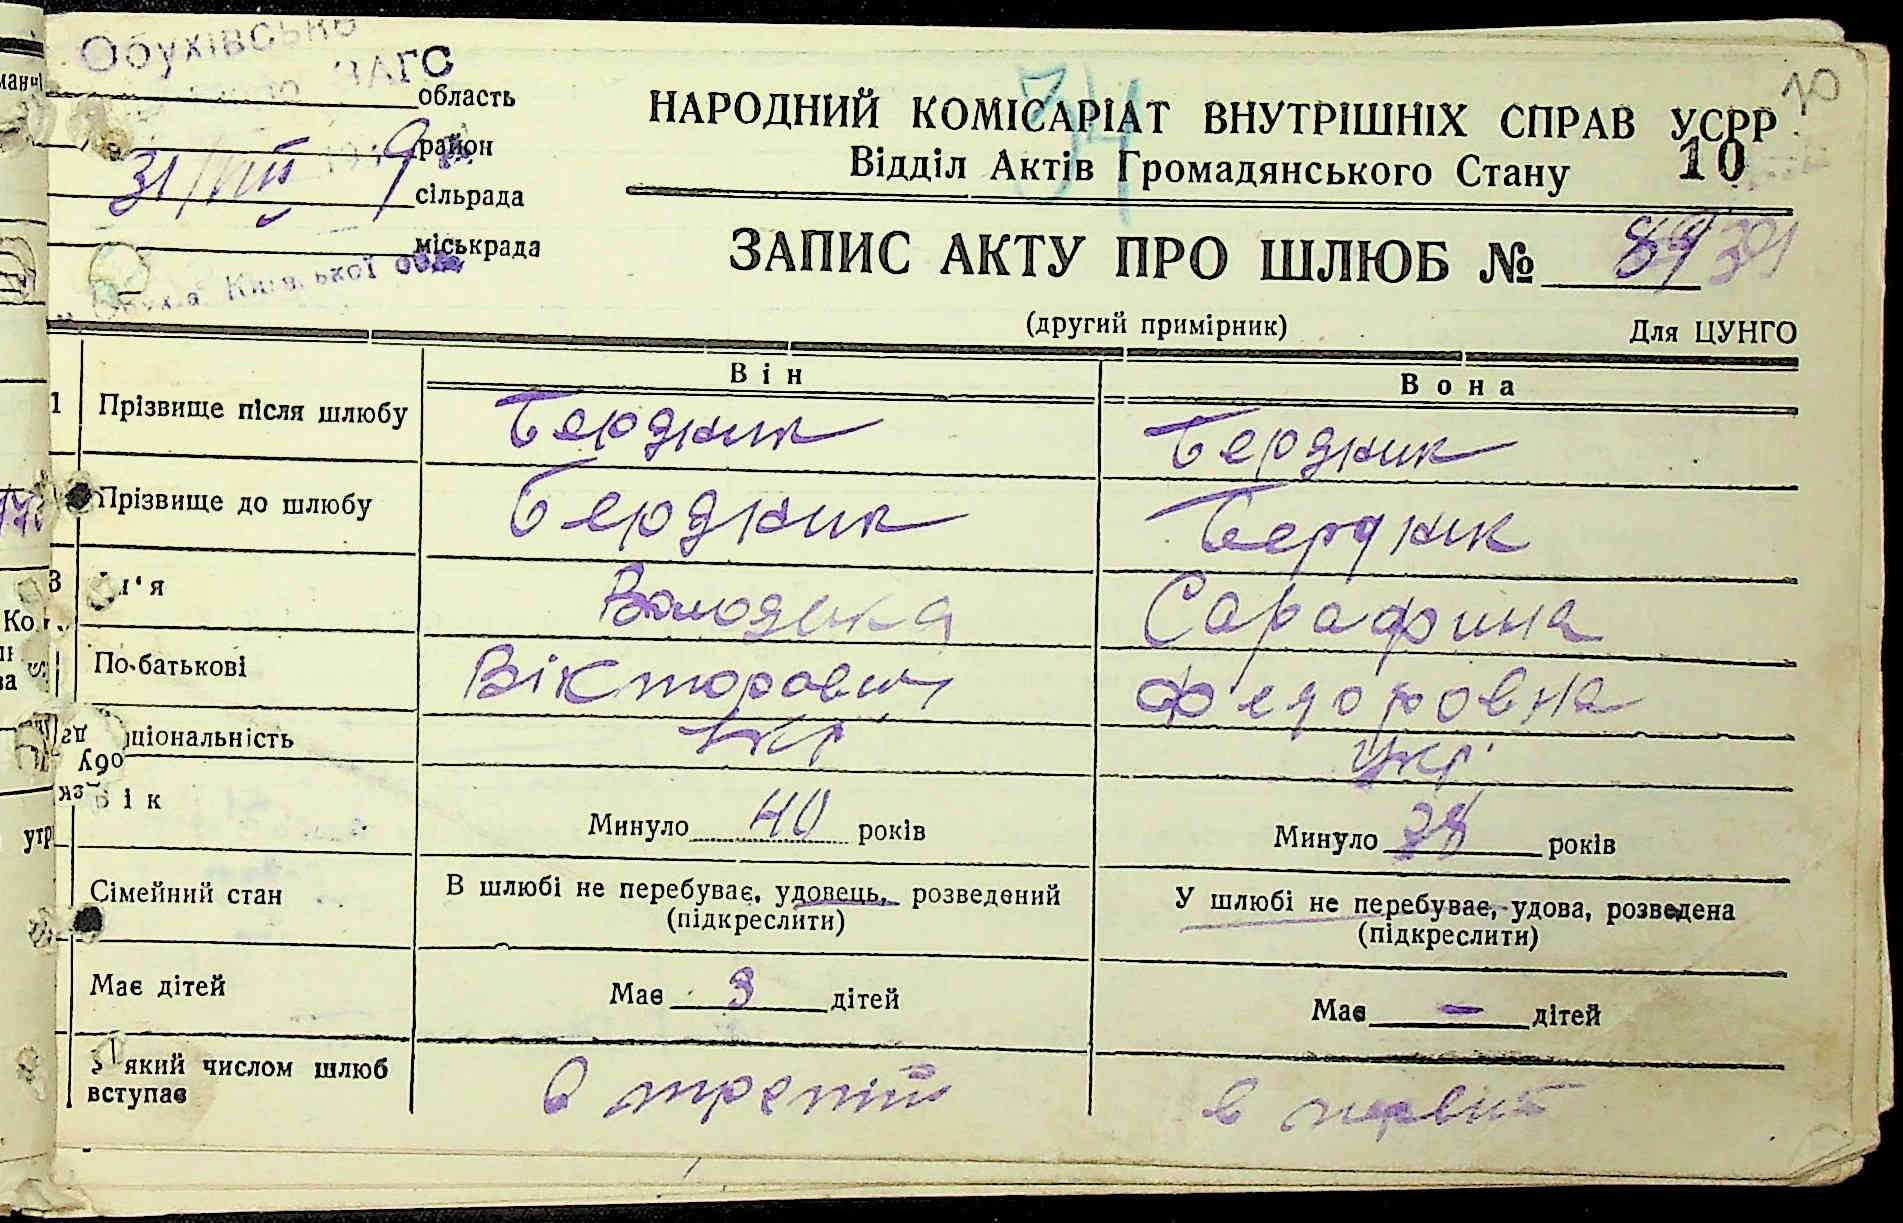 Обухівське
ЗАГС
область
район
сільрада
міськрада
Київської обл.
34
НАРОДНИЙ КОМІСАРІАТ ВНУТРІШНІХ СПРАВ УСРР
Відділ Актів Громадянського Стану
10
ЗАПИС АКТУ ПРО ШЛЮБ № 89
(другий примірник) Для ЦУНГО
Він Вона
1 Прізвище після шлюбу Бердник Бердник
Прізвище до шлюбу Бердник Бердник
3 м'я Сарафина
По-батькові Вікторович Федоровна
ціональність укр укр
Вік Минуло 40 років Минуло 28 років
Сімейний стан В шлюбі не перебуває, удовець, розведений У шлюбі не перебуває, удова, розведена
(підкреслити) (підкреслити)
Має дітей Має 3 дітей Має — дітей
який числом шлюб
вступає в третій в первий